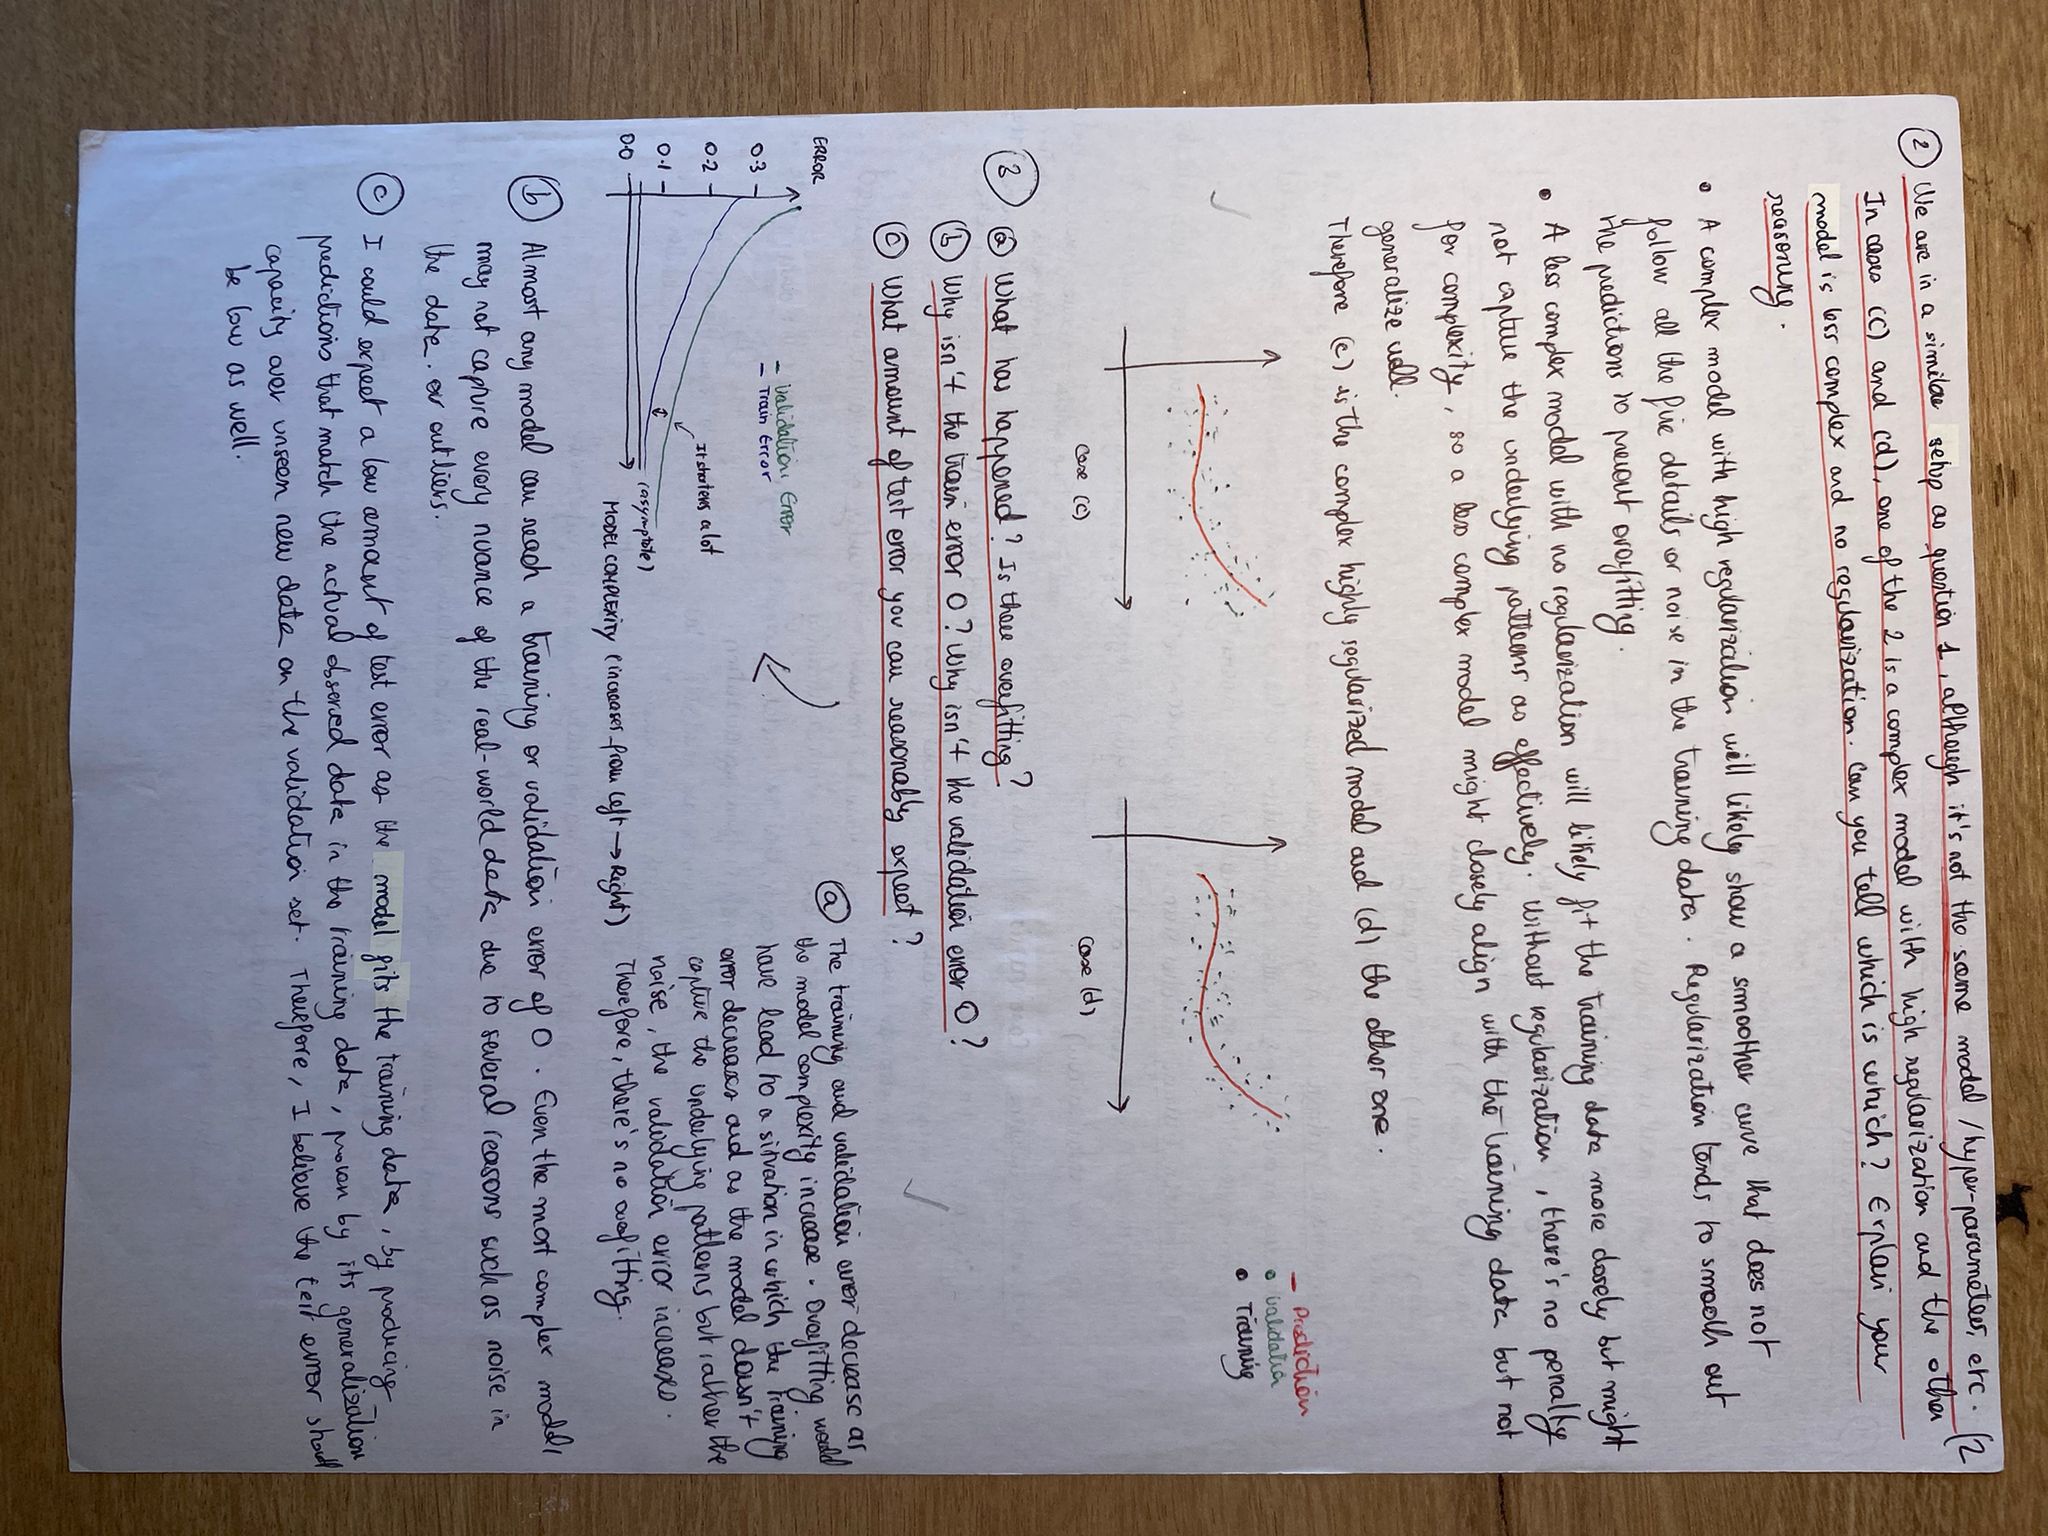 (2
② We are in a similar setup as question 1, although it's not the same model / hyper-parameters, etc.
In cases (c) and (d), one of the 2 is a complex model with high regularization and the other
model is less complex and no regularization. Can you tell which is which? Explain your
reasoning.
• A complex model with high regularization will likely show a smoother curve that does not
follow all the fine details or noise in the training data. Regularization tends to smooth out
the predictions to prevent overfitting.
• A less complex model with no regularization will likely fit the training data more closely but might
not capture the underlying patterns as effectively. Without regularization, there's no penalty
for complexity, so a less complex model might closely align with the training data but not
generalize well.
Therefore (c) is the complex highly regularized model and (d) the other one.
Prediction
Validation
Training
Case (c)
Case (d)
③ ⓐ What has happened? Is there overfitting?
ⓑ Why isn't the train error 0? Why isn't the validation error 0?
ⓒ What amount of test error you can reasonably expect?
ERROR
0.3
0.2
0.1
0.0
Validation Error
Train Error
It shortens a lot
(asymptote)
MODEL COMPLEXITY (increases from left → Right)
ⓐ The training and validation error decrease as
the model complexity increase. Overfitting would
have lead to a situation in which the training
error decreases and as the model doesn't
capture the underlying patterns but rather the
noise, the validation error increases.
Therefore, there's no overfitting.
ⓑ Almost any model can reach a training or validation error of 0. Even the most complex model,
may not capture every nuance of the real-world data due to several reasons such as noise in
the data. or outliers.
ⓒ I could expect a low amount of test error as the model fits the training data, by producing
predictions that match the actual observed data in the training data, proven by its generalization
capacity over unseen new data on the validation set. Therefore, I believe the test error should
be low as well.